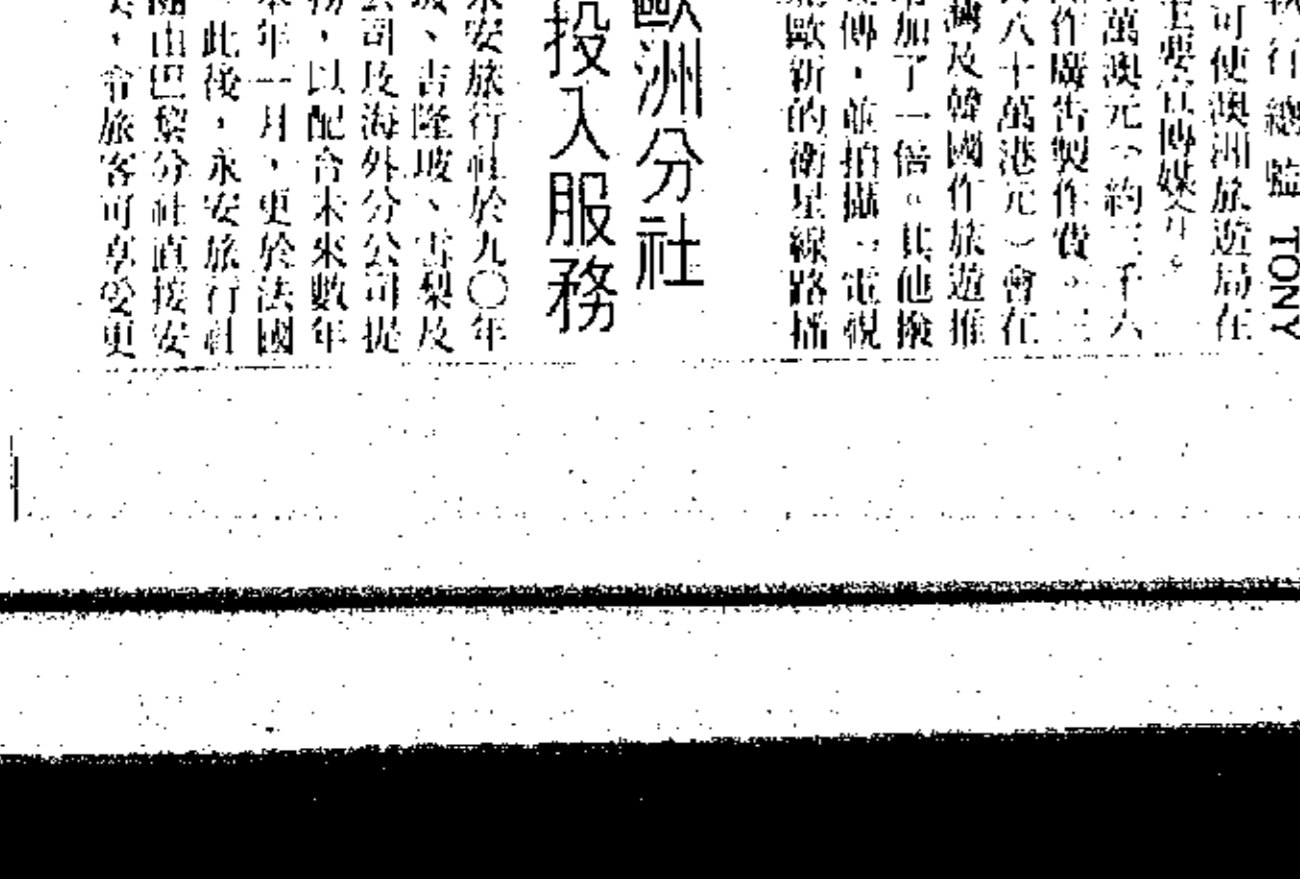 行總監 TONY
可使澳洲旅遊局在
主要宣傳媒介。
萬澳元（約三千六
作廣告製作費。三
八十萬港元）會在
灣及韓國作旅遊推
加了一倍。其他撥
傳，並拍攝「電視
歐新的衛星線路播
歐洲分社
投入服務
永安旅行社於九〇年
坡、吉隆坡、峇梨及
公司及海外分公司提
務，以配合未來數年
年一月，更於法國
此後，永安旅行社
團由巴黎分社直接安
，令旅客可享受更